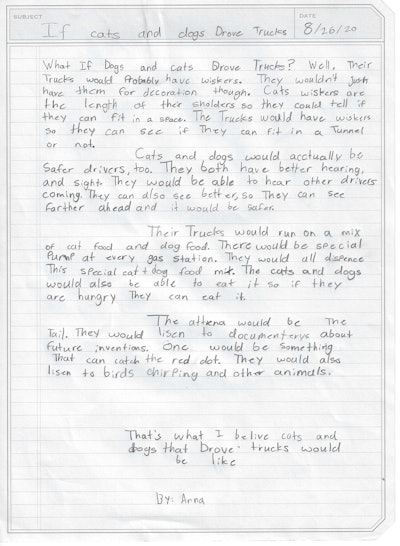 SUBJECT
DATE
If cats and dogs Drove Trucks
8/26/20
What If Dogs and cats Drove Trucks? Well, Their
Trucks would Probably have wiskers. They wouldn't Just
have them for decoration though. Cats wiskers are
the length of their sholders so they could tell if
they can fit in a space. The Trucks would have wiskers
so they can see if They can fit in a Tunnel
or not.
Cats and dogs would acctually be
Safer drivers, too. They both have better hearing,
and sight. They would be able to hear other drivers
coming. They can also see better, so They can see
farther ahead and it would be safer.
Their Trucks would run on a mix
of cat food and dog food. There would be special
Pump at every gas station. They would all dispence
This special cat + dog food mix. The cats and dogs
would also be able to eat it so if they
are hungry They can eat it.
The athena would be The
Tail. They would lisen to documenterys about
future inventions. One would be something
That can catch the red dot. They would also
lisen to birds chirping and other animals.
That's what I belive cats and
dogs that Drove trucks would
be like
By: Anna